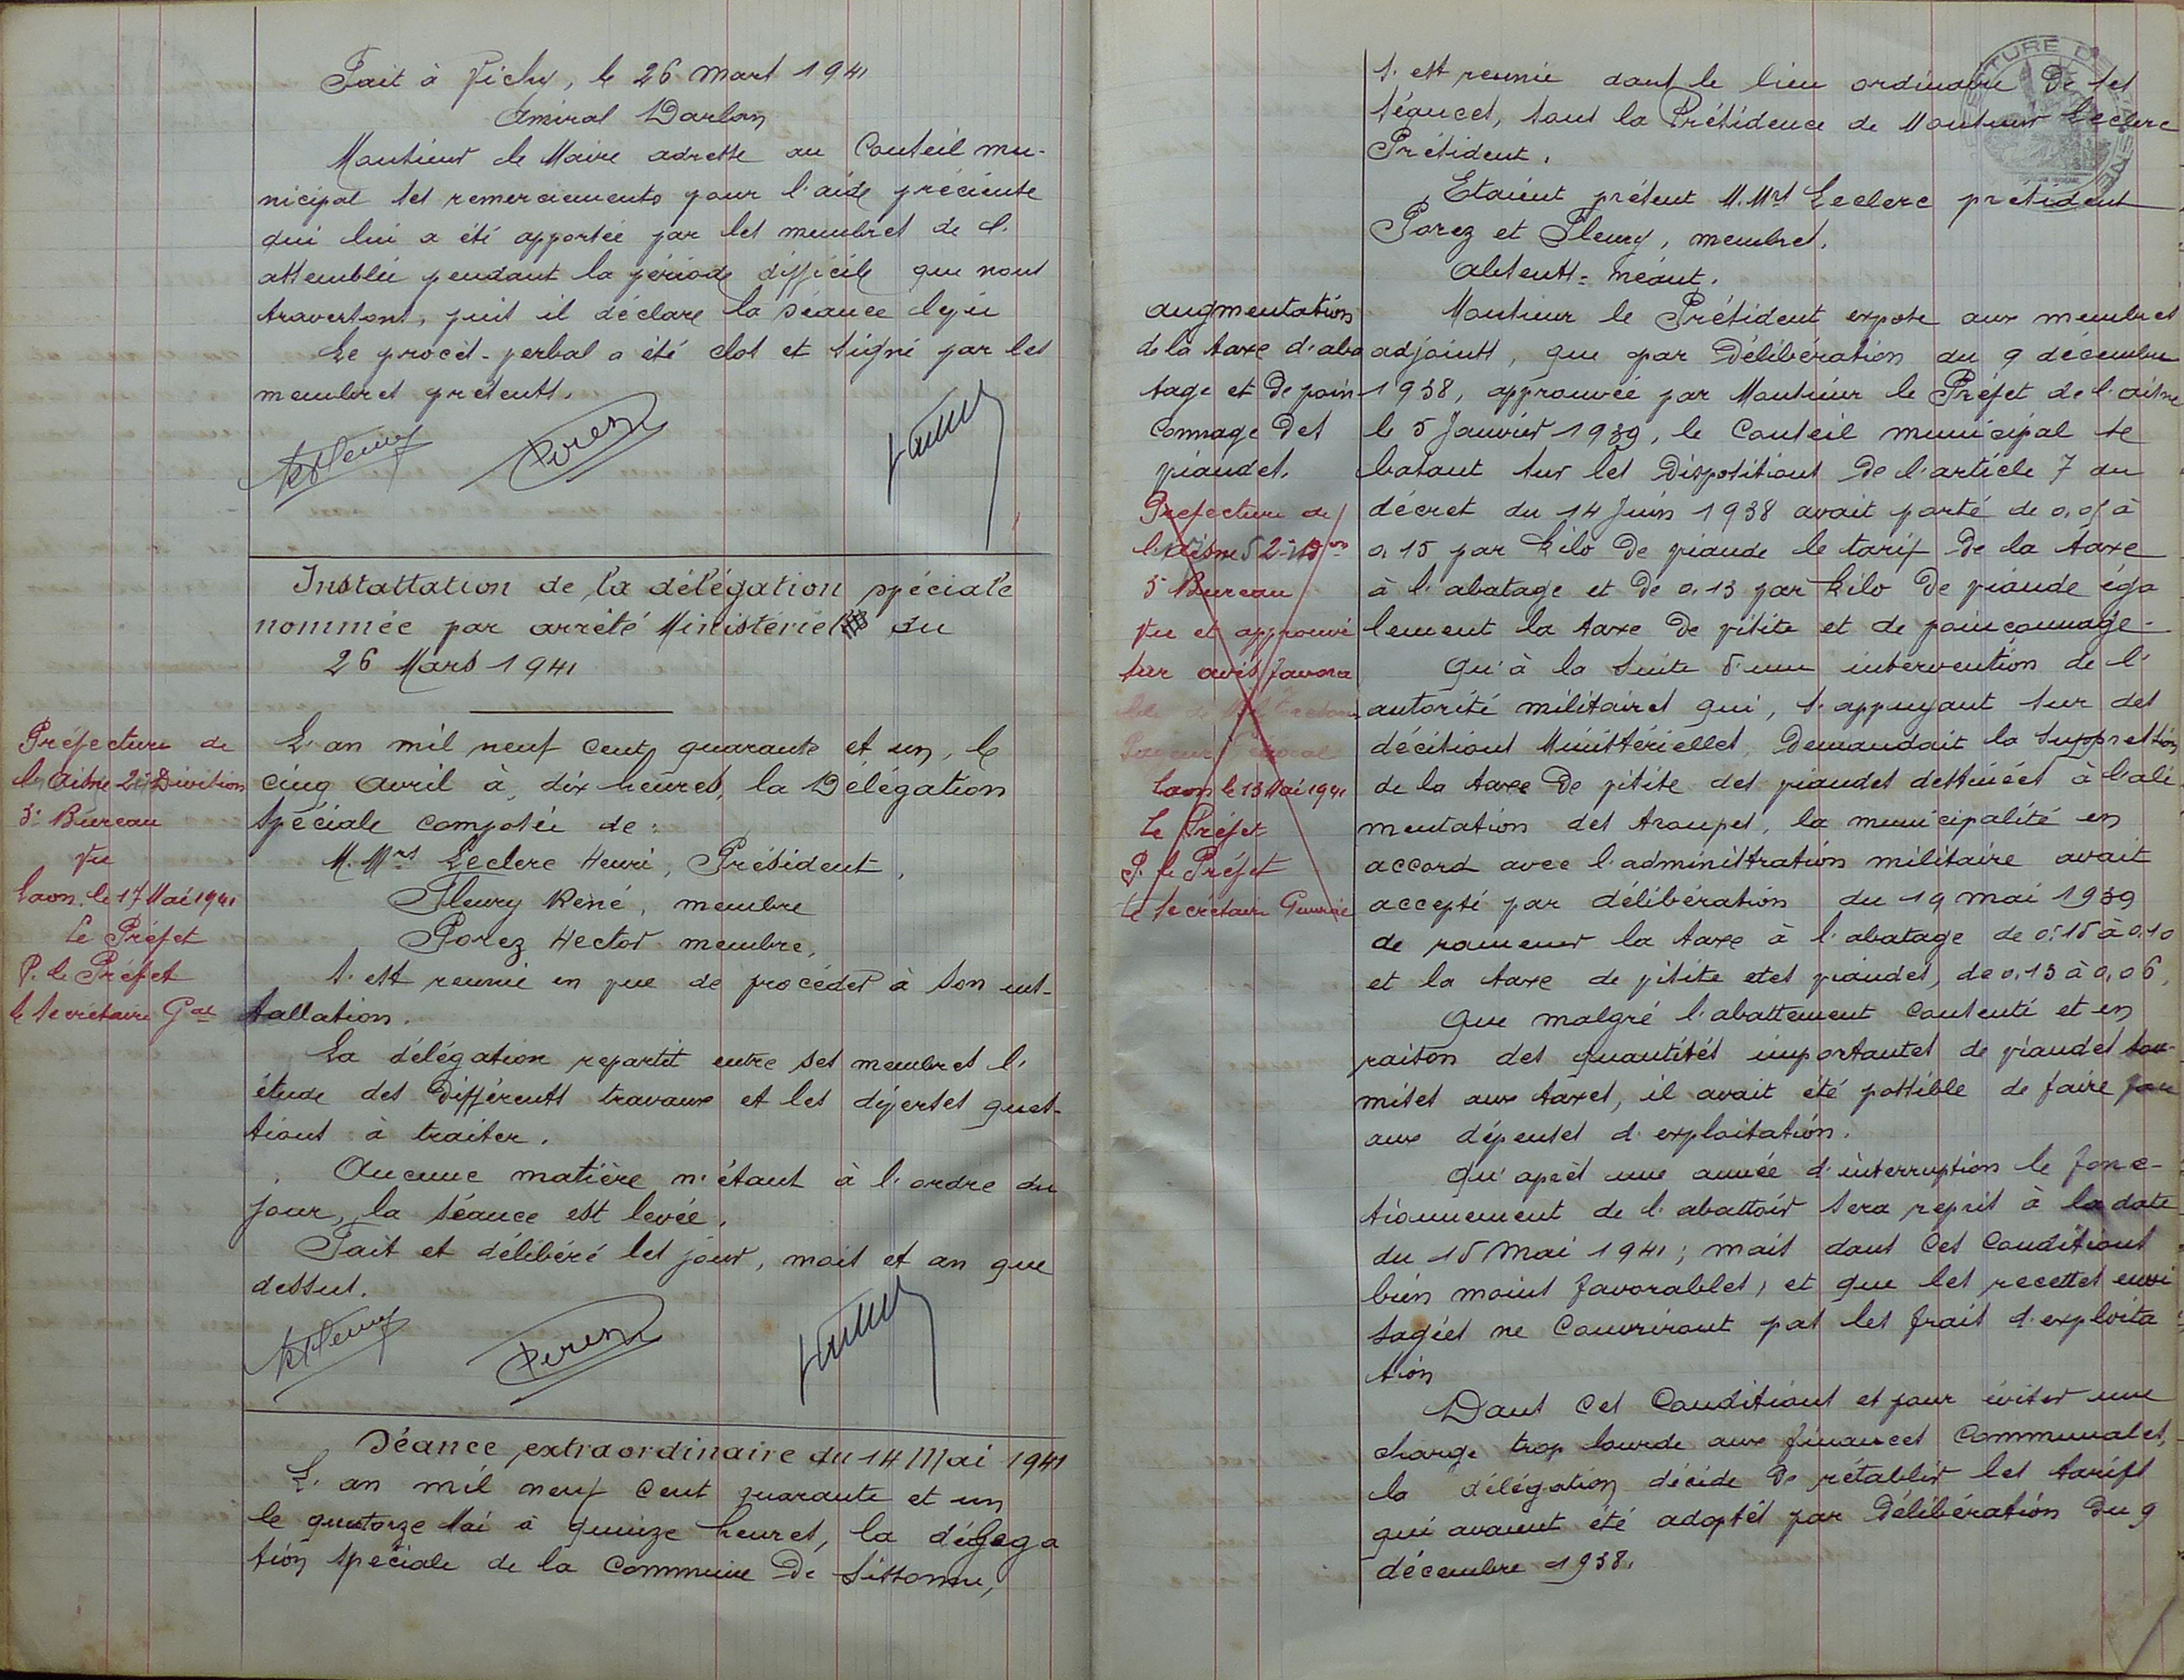 Fait à Vichy, le 26 Mars 1941
Amiral Darlan
Monsieur le Maire adresse au Conseil mu-
nicipal ses remerciements pour l'aide précieuse
qui lui a été apportée par les membres de l'
assemblée pendant la période difficile que nous
traversons, puis il déclare la séance levée
Le procès-verbal a été clos et signé par les
membres présents.
Installation de la délégation spéciale
nommée par arrêté Ministériel du
26 Mars 1941
Préfecture de
l'Aisne 2è Division
3è Bureau
Vu
Laon, le 17 Mai 1941
Le Préfet
P. le Préfet
le Secrétaire Gal
L'an mil neuf cent quarante et un, le
cinq Avril à dix heures, la Délégation
Spéciale composée de :
M.Mrs Leclerc Henri, Président,
Fleury René, membre
Porez Hector membre,
s'est reunie en vue de procéder à son ins-
tallation.
La délégation repartit entre ses membres l'
étude des différents travaux et les diverses ques-
tions à traiter.
Aucune matière n'étant à l'ordre du
jour, la séance est levée.
Fait et délibéré les jour, mois et an que
dessus.
Séance extraordinaire du 14 Mai 1941
L'an mil neuf cent quarante et un
le quatorze Mai à quinze heures, la déléga
tion spéciale de la Commune de Sissonne,
s'est reunie dans le lieu ordinaire de ses
séances, sous la Présidence de Monsieur Leclerc
Président.
Etaient présent M.Mrs Leclerc président
Porez et Fleury, membres.
Absents = néant.
augmentation
de la taxe d'aba
tage et de poin
connage des
viandes.
Prefecture de
l'Aisne 2è Don
3è Bureau
Vu et approuvé
sur avis favora
Laon le 13 Mai 1941
Le Préfet
P. le Préfet
le Secrétaire Général
Monsieur le Président expose aux membres
adjoints, que par Délibération du 9 décembre
1938, approuvée par Monsieur le Préfet de l'Aisne
le 5 Janvier 1939, le Conseil municipal se
basant sur les Dispositions de l'article 7 du
décret du 14 Juin 1938 avait porté de 0,05 à
0,15 par kilo de viande le tarif de la taxe
à l'abatage et de 0,13 par kilo de viande éga
lement la taxe de visite et de poinçonnage.
Qu'à la suite d'une intervention de l'
autorité militaires qui, s'appuyant sur des
décisions Ministérielles, Demandait la suppression
de la taxe de visite des viandes destinées à l'ali
mentation des troupes, la municipalité en
accord avec l'administration militaire avait
accepté par délibération du 19 mai 1939
de ramener la taxe à l'abatage de 0,15 à 0,10
et la taxe de visite des viandes, de 0,13 à 0,06.
Que malgré l'abattement consenti et en
raison des quantités importantes de viandes sou-
mises aux taxes, il avait été possible de faire face
aux dépenses d'exploitation.
Qu'après une année d'interruption le fonc-
tionnement de l'abattoir sera repris à la date
du 15 Mai 1941 ; mais dans des Conditions
bien moins favorables, et que les recettes envi
sagées ne couvriront pas les frais d'exploita
tion
Dans ces Conditions et pour éviter une
charge trop lourde aux finances Communales,
la délégation décide de rétablir les tarifs
qui avaient été adoptés par Délibération du 9
décembre 1938.